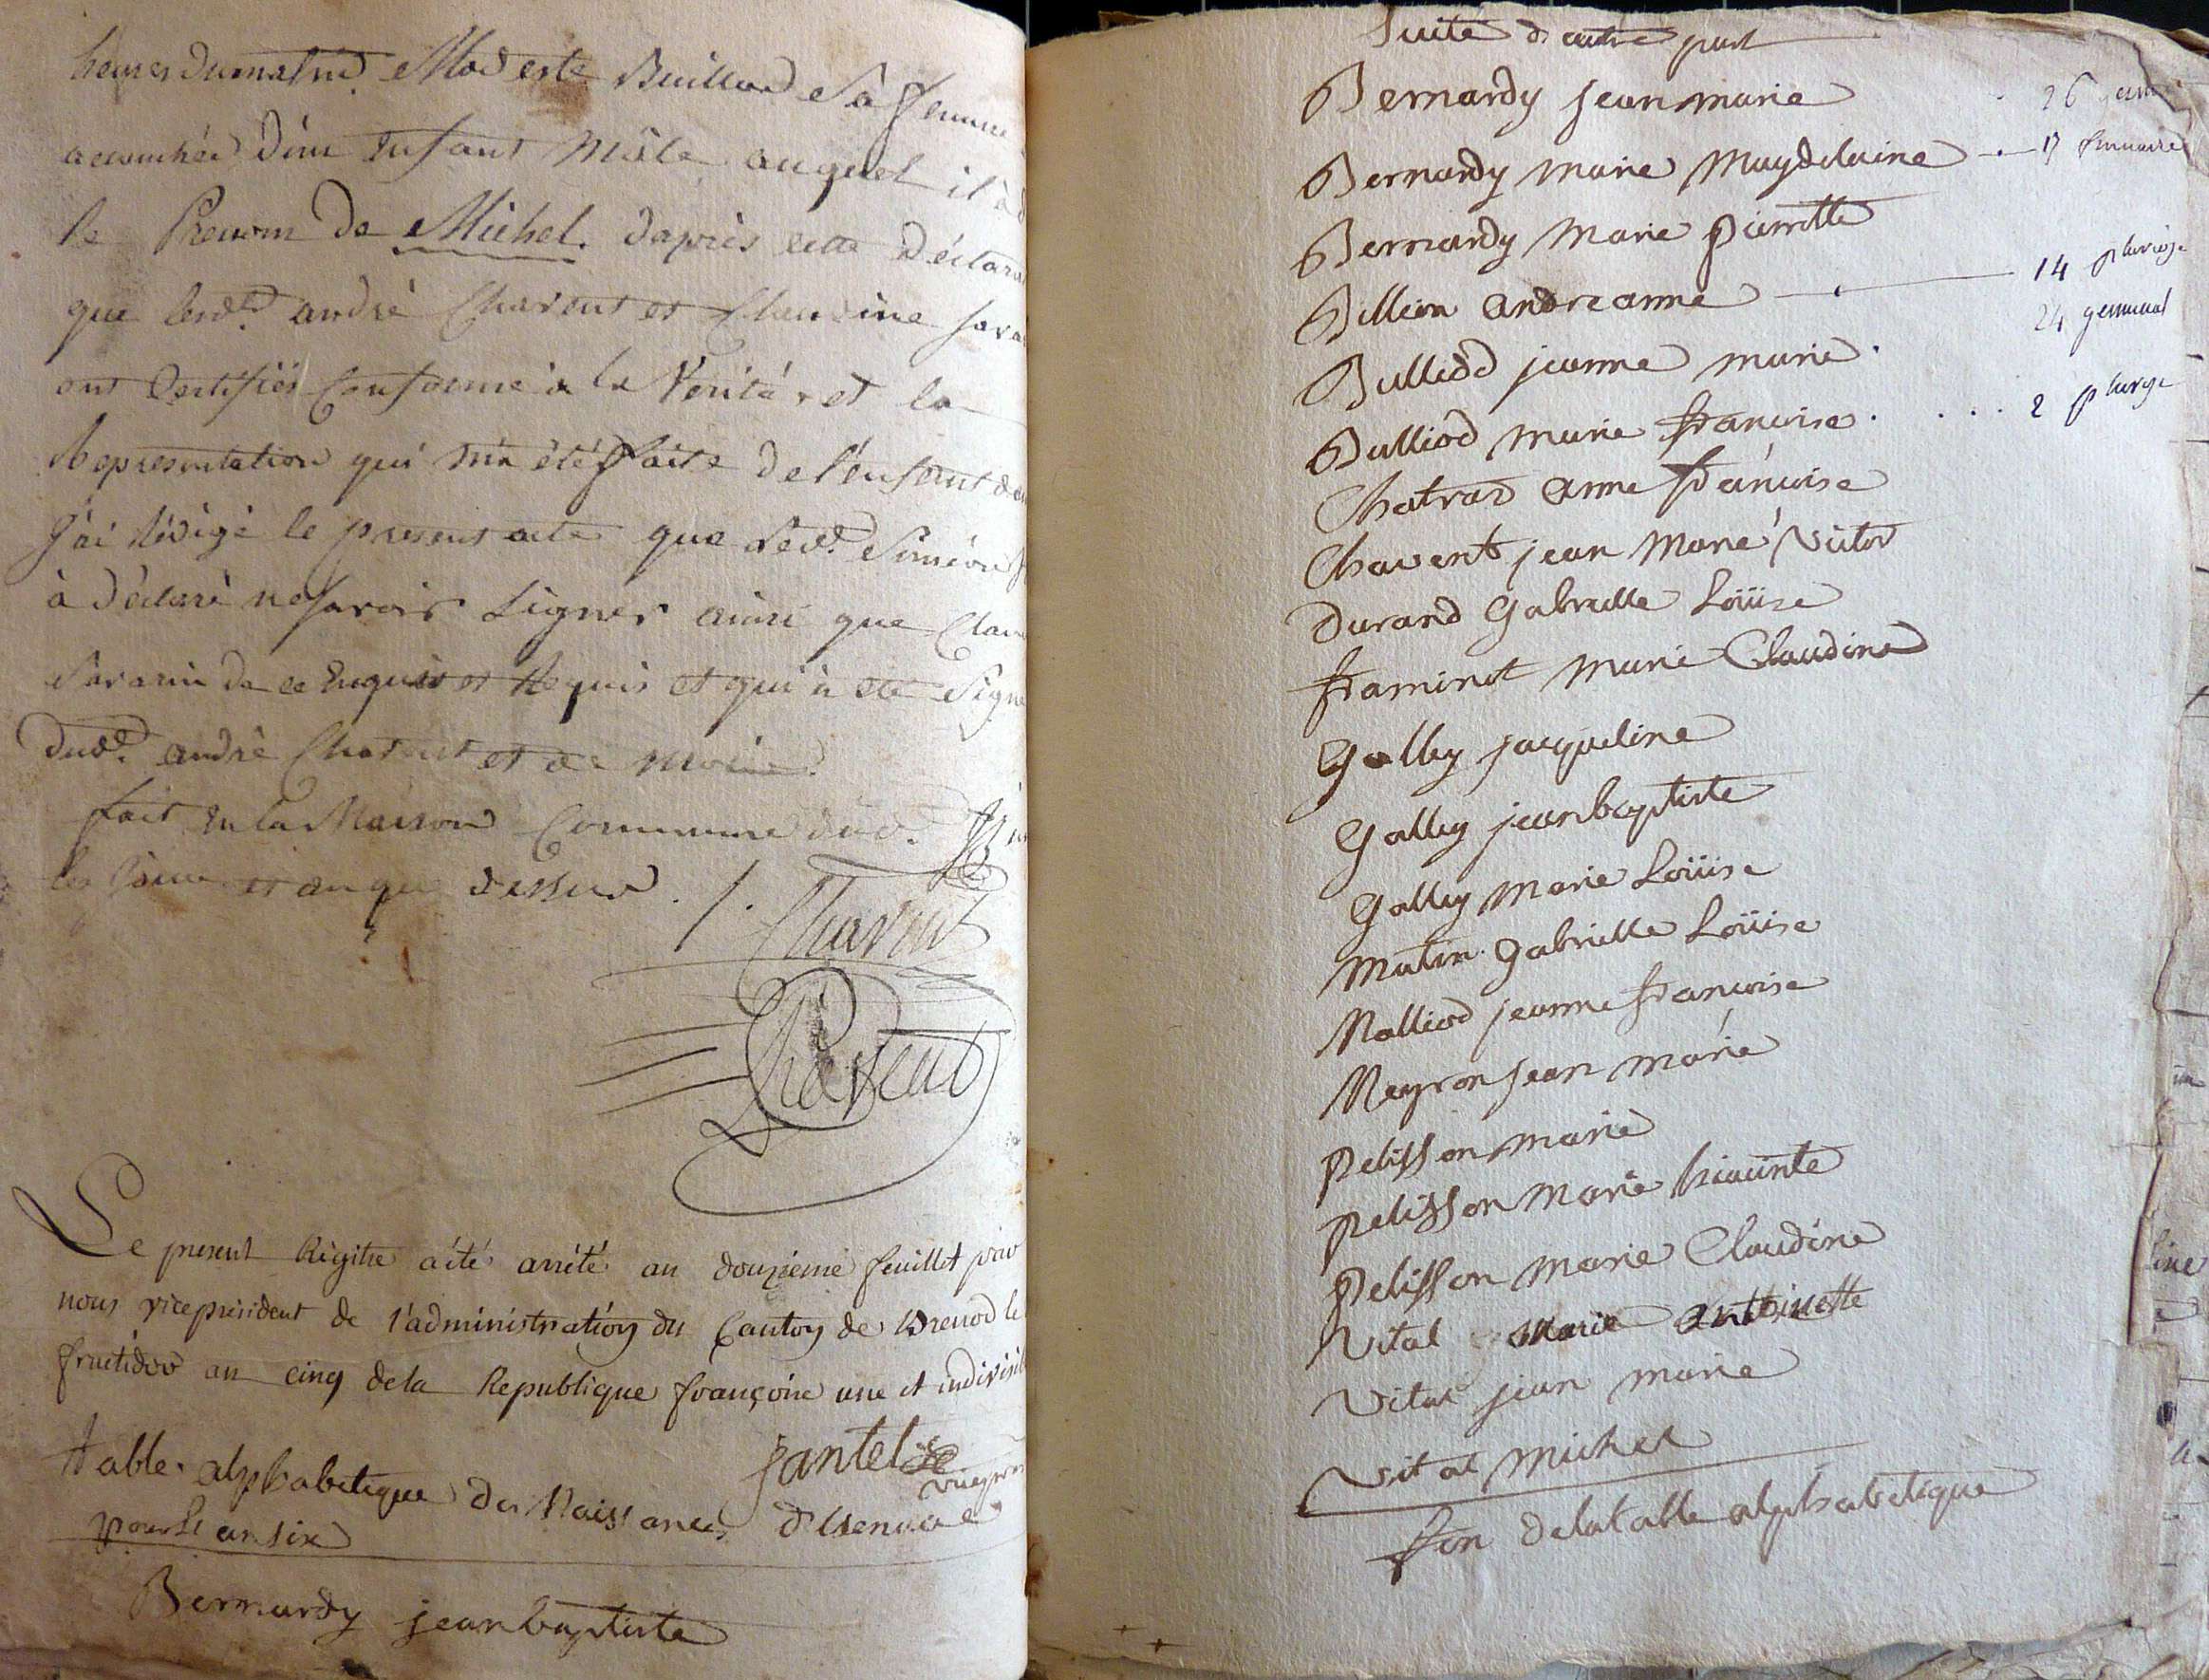 heures du matin. Modeste Buillod Sa femme
accouchée d'un Enfant Mâle auquel il à
le Prenom de Michel. d'après cette Déclara
que lesd. andré Charent et Claudine Sara
ont Certifiés Conforme à la Verité et la
Representation qui m'a été faite de l'enfant
J'ai Rédigé le present acte que led. Siméon
à Déclaré ne Savoir Signer ainsi que Clau
Sarasin de ce Enquis et Requis et qui à été Signé
dud. andré Charent et de moi
fait en la Maison Commune dud.
les Jour et an que dessus ./.
Charent
Charent
Le present Régitre a été arrêté au douzieme feuillet par
nous vice president de l'administration du Canton de Brenod le
fructidor an cinq dela Republique françoise une et indivisi
Jantet
table alphabetique des Naissances d'Izenave
pour L'an six
Bernardy jean baptiste
Suite d'autre part
Bernardy jean marie 26
Bernardy marie Magdelaine 17 frimaire
Bernardy Marie Pierrette
Billion andreanne 14 pluviose
Bulliod jeanne marie 24 germinal
Bulliod marie francoise 2 pluviose
Chatrad anne francoise
Chavent jean Marie Victor
Durand Gabrielle Loüise
framinet marie Claudine
Galley jacqueline
Galley jean baptiste
Galley Marie Loüise
Matin Gabrielle Loüise
Nalliod jeanne francoise
Neyron jean marie
Pelisson marie
Pelisson Marie hiacinte
Pelisson Marie Claudine
Vital Marie Antoinette
Vital jean marie
Vital Michel
fin de la table alphabetique